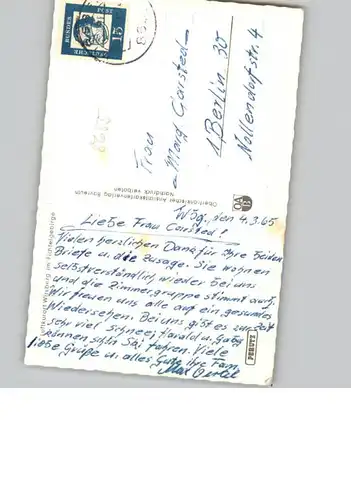 DEUTSCHE
BUNDES
POST
15
Frau
Marg. Carsted
1 Berlin 30
Nollendorfstr. 4
Oberfränkischer Ansichtskartenverlag Bayreuth
Nachdruck verboten
Luftkurort Wirsberg im Fichtelgebirge
PERUTZ
Wbg., den 4.3.65
Liebe Frau Carsted!
Vielen herzlichen Dank für Ihre beiden
Briefe u. die Zusage. Sie wohnen
selbstverständlich wieder bei uns
und die Zimmergruppe stimmt auch.
Wir freuen uns alle auf ein gesundes
Wiedersehen. Bei uns gibt es zur Zeit
sehr viel Schnee, Harald u. Gaby
können schön Ski fahren. Viele
liebe Grüße u. alles Gute Ihre Fam.
Max Oertel